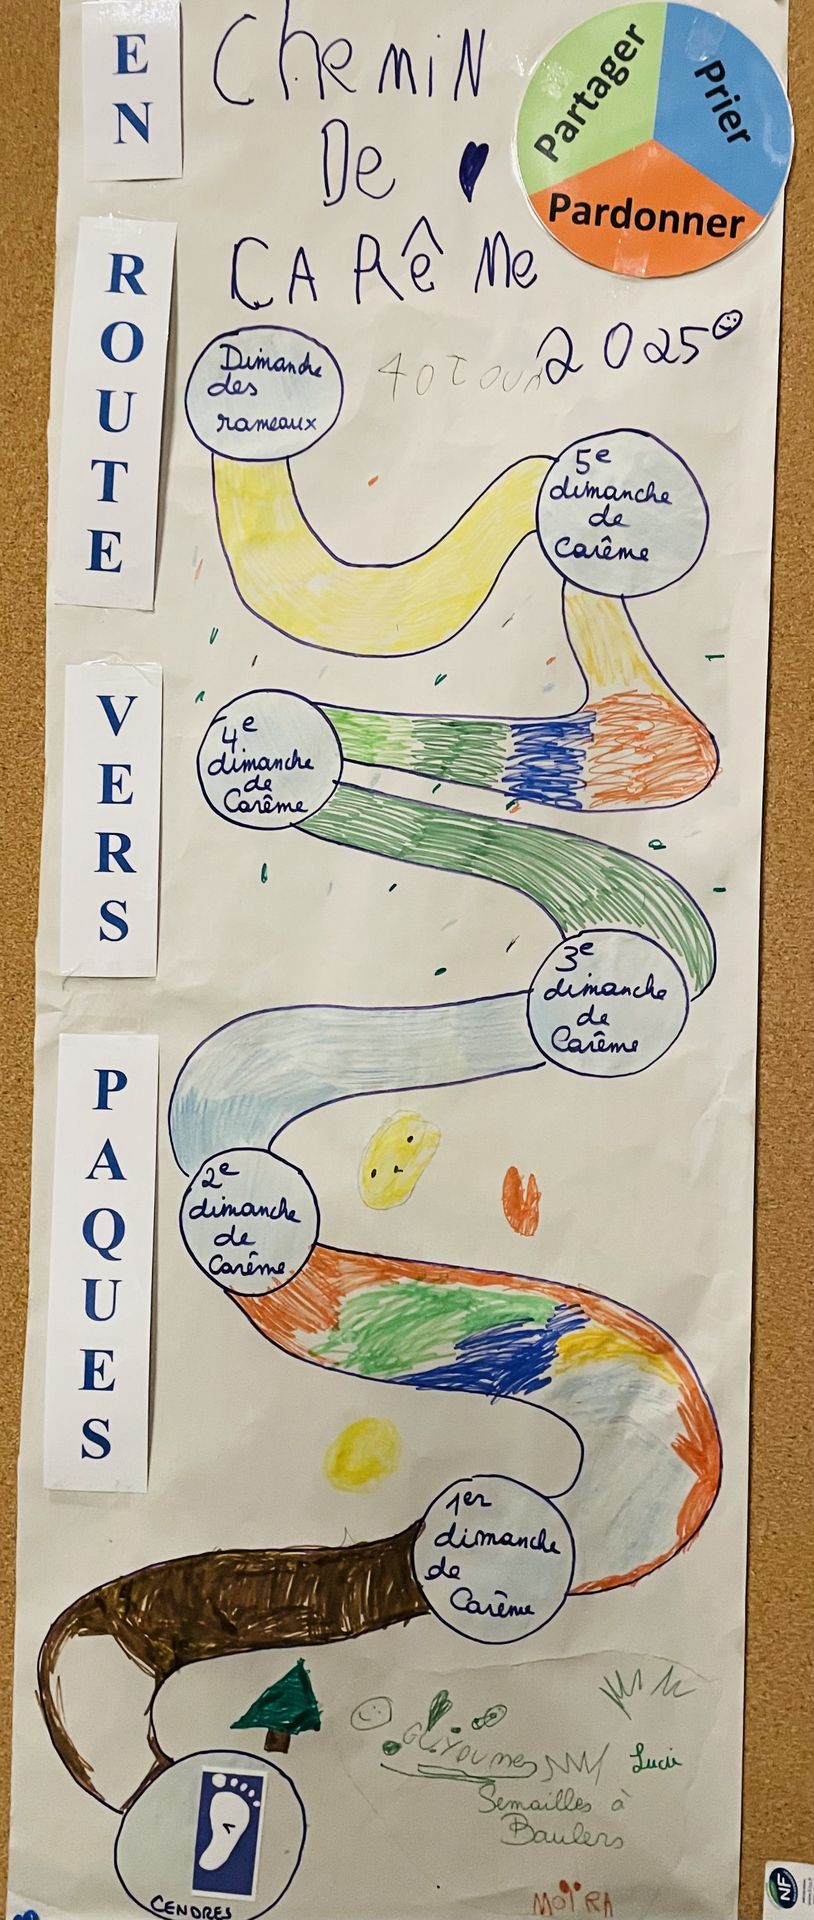 EN
ROUTE
VERS
PAQUES
CHEMIN
De
CARême
2025
Partager
Prier
Pardonner
Dimanche
des
rameaux
5e
dimanche
de
Carême
4e
dimanche
de
Carême
3e
dimanche
de
Carême
2e
dimanche
de
Carême
1er
dimanche
de
Carême
Lucie
Semailles à
Baulers
1
CENDRES
MOÏRA
NF